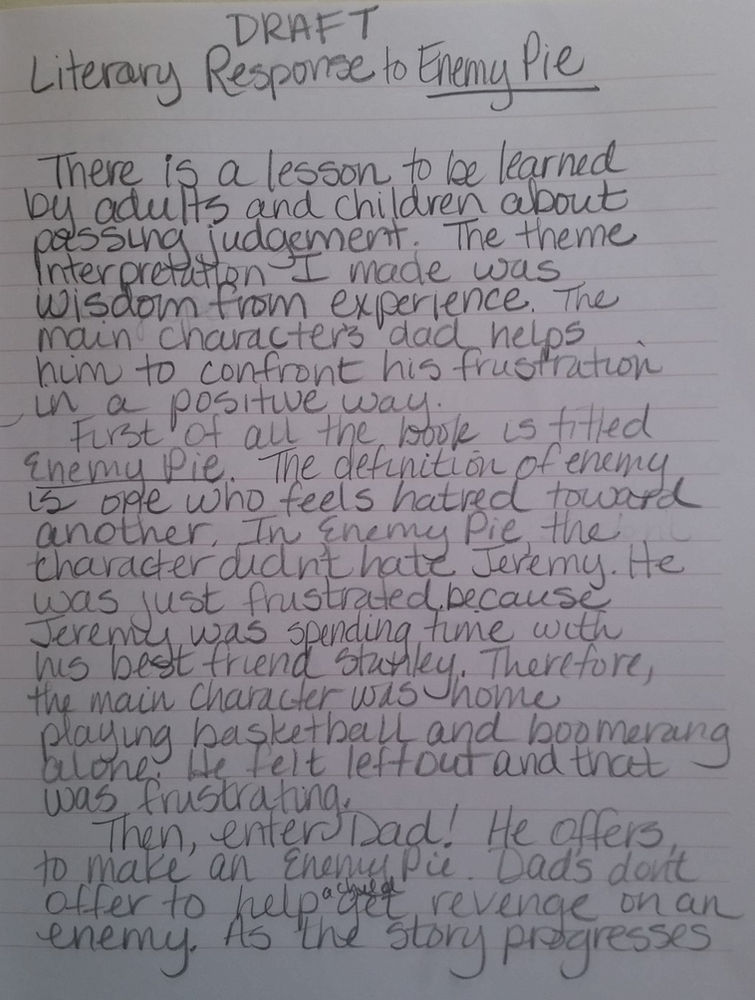 DRAFT
Literary Response to Enemy Pie
There is a lesson to be learned
by adults and children about
passing judgement. The theme
interpretation I made was
wisdom from experience. The
main characters dad helps
him to confront his frustration
in a positive way.
First of all the book is titled
Enemy Pie. The definition of enemy
is one who feels hatred toward
another. In Enemy Pie, the
character didn't hate Jeremy. He
was just frustrated because
Jeremy was spending time with
his best friend Stanley. Therefore,
the main character was home
playing basketball and boomerang
alone. He felt left out and that
was frustrating.
Then, enter Dad! He offers
to make an Enemy Pie. Dads don't
offer to help a child get revenge on an
enemy. As the story progresses